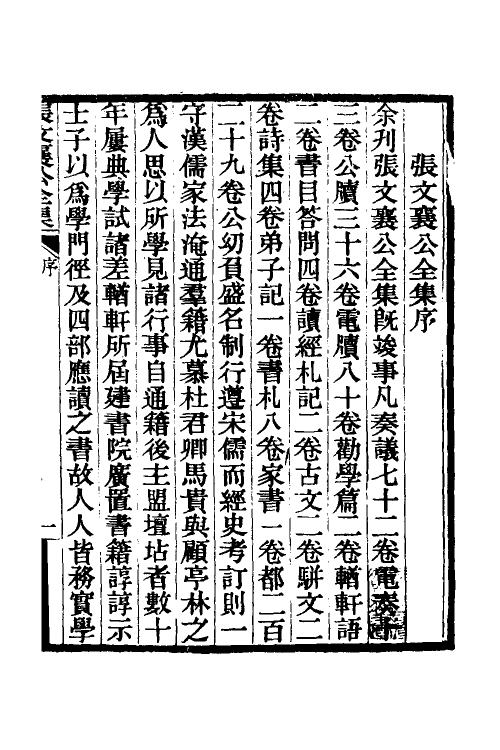 張文襄公全集序
余刊張文襄公全集旣竣事凡奏議七十二卷電奏十
三卷公牘三十六卷電牘八十卷勸學篇二卷輶軒語
二卷書目答問四卷讀經札記二卷古文二卷駢文二
卷詩集四卷弟子記一卷書札八卷家書一卷都二百
二十九卷公幼負盛名制行遵宋儒而經史考訂則一
守漢儒家法淹通羣籍尤慕杜君卿馬貴與顧亭林之
爲人思以所學見諸行事自通籍後主盟壇坫者數十
年屢典學試諸差輶軒所屆建書院廣置書籍諄諄示
士子以爲學門徑及四部應讀之書故人人皆務實學
張文襄公全集
序
一